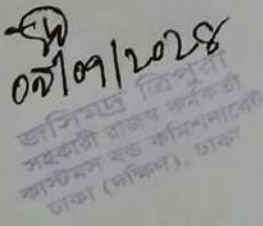 ০৯/০৭/২০২৪
জসিমদ্র ত্রিপুরা
সহকারী রাজস্ব কর্মকর্তা
কাস্টমস বন্ড কমিশনারেট
ঢাকা (দক্ষিণ), ঢাকা